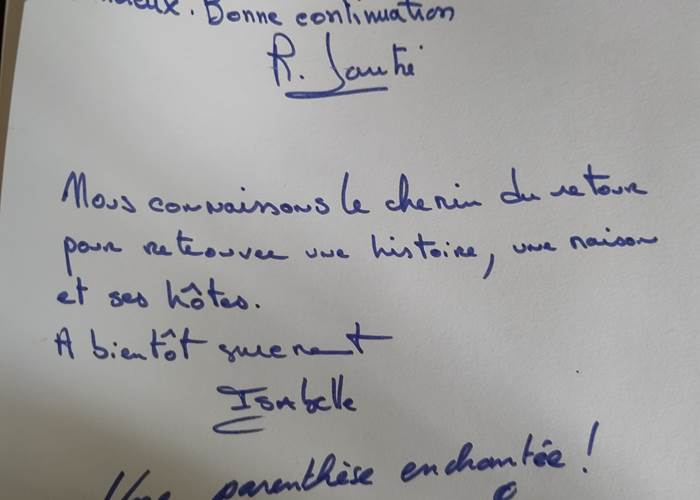 . Bonne continuation
R.
Nous connaissons le chemin du retour
pour retrouver une histoire, une maison
et ses hôtes.
A bientôt surement
Isabelle
Une parenthèse enchantée !